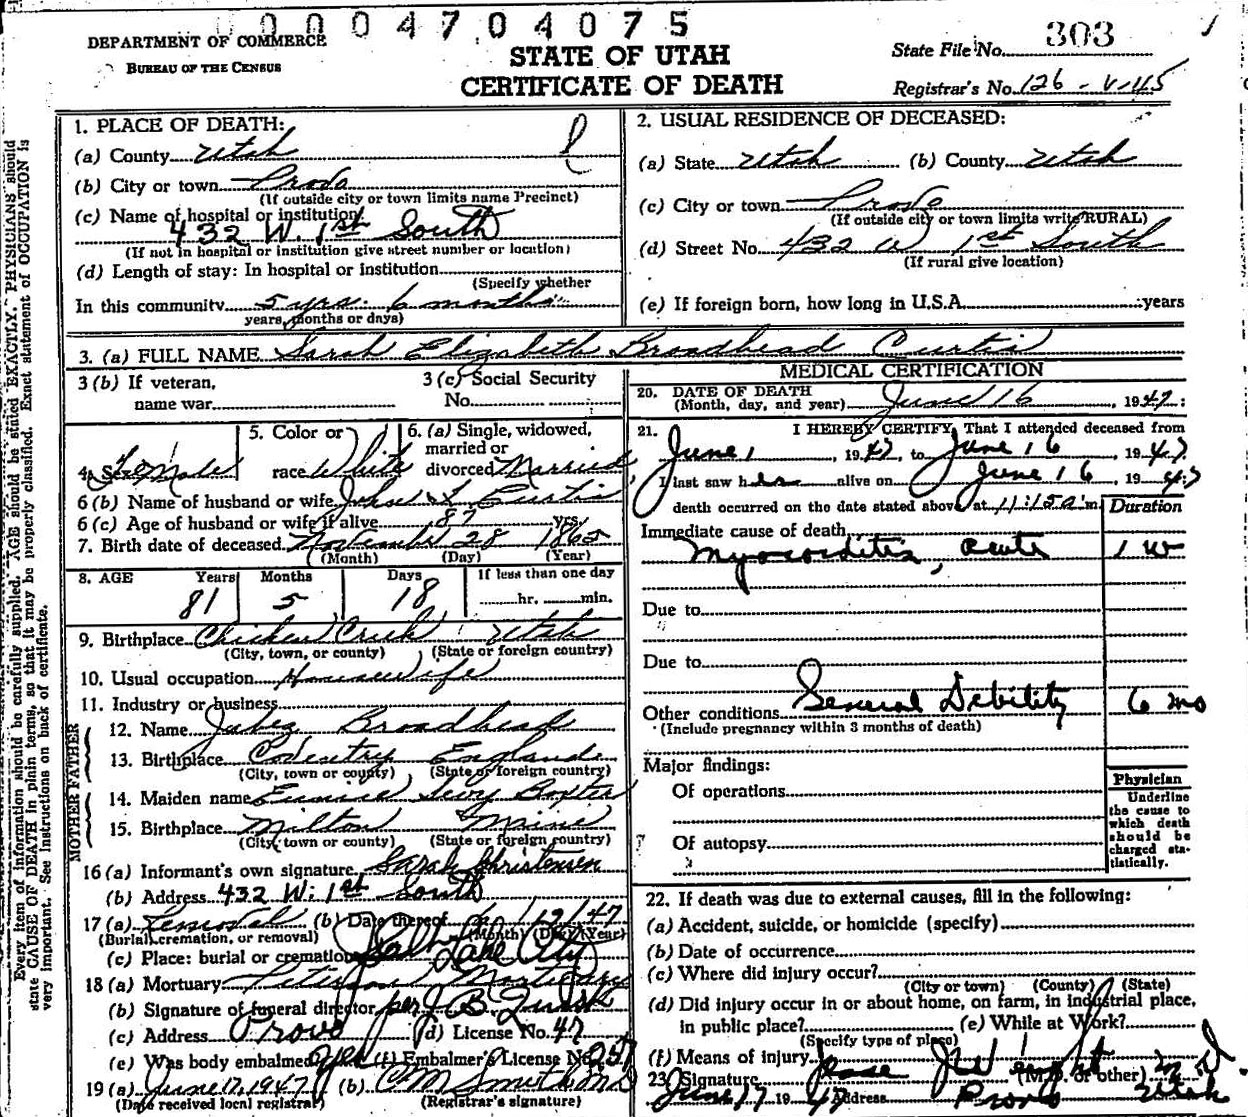 0004704075
DEPARTMENT OF COMMERCE
BUREAU OF THE CENSUS
STATE OF UTAH
CERTIFICATE OF DEATH
State File No. 303
Registrar's No. 126-V-45
Every item of information should be carefully supplied. AGE should be stated EXACTLY. PHYSICIANS should
state CAUSE OF DEATH in plain terms, so that it may be properly classified. Exact statement of OCCUPATION is
very important. See instructions on back of certificate.
1. PLACE OF DEATH:
(a) County Utah
(b) City or town Provo
(If outside city or town limits name Precinct)
(c) Name of hospital or institution
432 W. 1st South
(If not in hospital or institution give street number or location)
(d) Length of stay: In hospital or institution
(Specify whether
In this community 5 yrs. 6 months
years, months or days)
2. USUAL RESIDENCE OF DECEASED:
(a) State Utah (b) County Utah
(c) City or town Provo
(If outside city or town limits write RURAL)
(d) Street No. 432 W 1st South
(If rural give location)
(e) If foreign born, how long in U.S.A. years
3. (a) FULL NAME Sarah Elizabeth Broadhead Curtis
3 (b) If veteran,
name war
3 (c) Social Security
No.
4. Sex Female
5. Color or
race White
6. (a) Single, widowed,
married or
divorced Married
6 (b) Name of husband or wife John L Curtis
6 (c) Age of husband or wife if alive 87 yrs.
7. Birth date of deceased November 28 1865
(Month) (Day) (Year)
8. AGE Years Months Days If less than one day
81 5 18 hr. min.
9. Birthplace Chicken Creek Utah
(City, town, or county) (State or foreign country)
10. Usual occupation Housewife
11. Industry or business
FATHER
12. Name Jabez Broadhead
13. Birthplace Coventry England
(City, town or county) (State or foreign country)
MOTHER
14. Maiden name Eunice Baxter
15. Birthplace Milton Maine
(City, town or county) (State or foreign country)
16 (a) Informant's own signature Sarah Christensen
(b) Address 432 W. 1st South
17 (a) Removal (b) Date thereof 12/47
(Burial, cremation, or removal) (Month) (Day) (Year)
(c) Place: burial or cremation Salt Lake City
18 (a) Mortuary Mortuary
(b) Signature of funeral director per J B
(c) Address Provo (d) License No. 47
(e) Was body embalmed Yes (f) Embalmer's License No. 257
19 (a) June 17, 1947 (b) C M Smith
(Date received local registrar) (Registrar's signature)
MEDICAL CERTIFICATION
20. DATE OF DEATH
(Month, day, and year) June 16, 1947
21. I HEREBY CERTIFY, That I attended deceased from
June 1, 1947, to June 16, 1947
I last saw her alive on June 16, 1947
death occurred on the date stated above at 11:15a m. Duration
Immediate cause of death
Myocarditis, acute 1 w
Due to
Due to
General Debility 6 mo
Other conditions
(Include pregnancy within 3 months of death)
Major findings:
Of operations
Of autopsy
Physician
Underline
the cause to
which death
should be
charged sta-
tistically.
22. If death was due to external causes, fill in the following:
(a) Accident, suicide, or homicide (specify)
(b) Date of occurrence
(c) Where did injury occur?
(City or town) (County) (State)
(d) Did injury occur in or about home, on farm, in industrial place,
in public place? (e) While at Work?
(Specify type of place)
(f) Means of injury
23. Signature (M.D. or other) M D
June 17 1947 Address Provo Utah